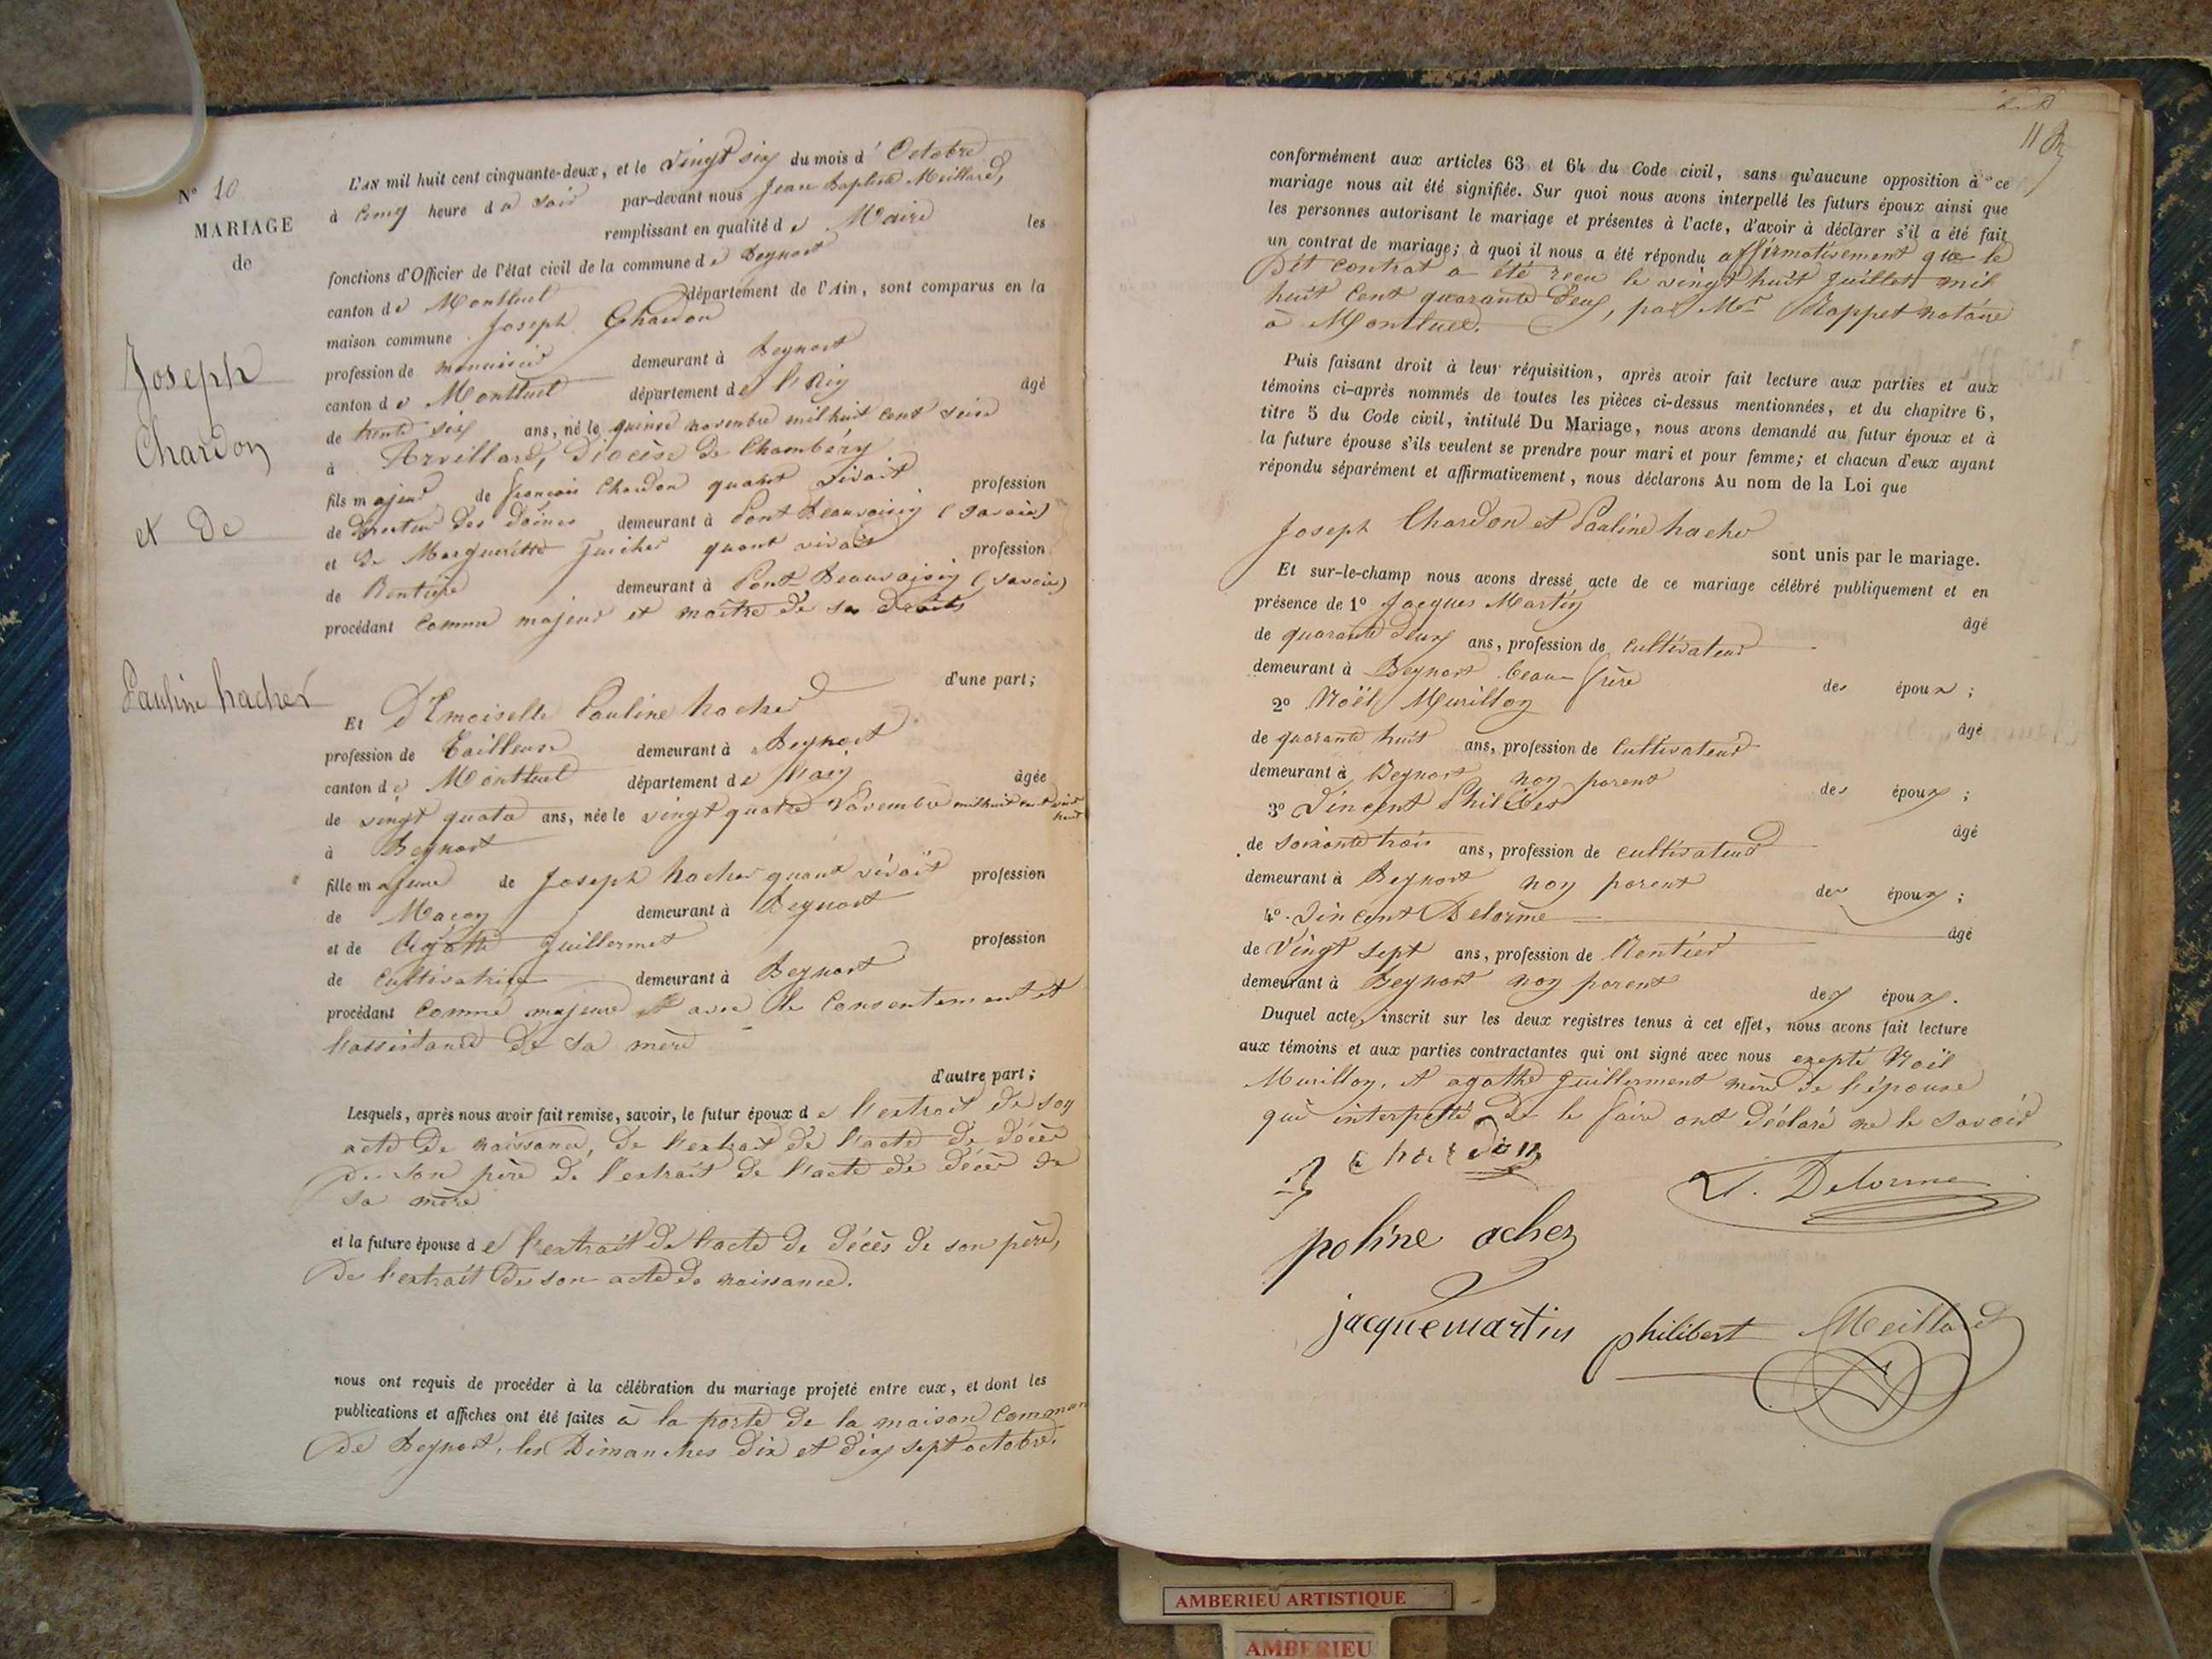 N° 10
MARIAGE
de
Joseph
Chardon
et de
Pauline hacher
L'an mil huit cent cinquante-deux, et le vingt six du mois d'Octobre
à cinq heure du soir par-devant nous Jean Baptiste Meillard,
remplissant en qualité de Maire les
fonctions d'Officier de l'état civil de la commune de Beynost
canton de Montluel département de l'Ain, sont comparus en la
maison commune Joseph Chardon
profession de menuisier demeurant à Beynost
canton de Montluel département de l'Ain âgé
de trente six ans, né le quinze novembre mil huit cent seize
à Arvillard, Diocèse de Chambéry
fils majeur de françois Chardon quant vivait profession
de des demeurant à Pont Beauvoisin (savoie)
et de Margueritte quant vivait profession
de Rentière demeurant à Pont Beauvoisin (savoie)
procédant comme majeur et maître de ses droits
d'une part;
Et Dlmoiselle Pauline hacher
profession de tailleuse demeurant à Beynost
canton de Montluel département de l'ain âgée
de vingt quatre ans, née le vingt quatre Novembre mil huit cent vint
huit
à Beynost
fille majeure de Joseph hacher quant vivait profession
de Maçon demeurant à Beynost
et de Agathe Guillermet profession
de cultivatrice demeurant à Beynost
procédant comme majeure et avec le consentement et
l'assistance de sa mère
d'autre part;
Lesquels, après nous avoir fait remise, savoir, le futur époux de l'extrait de son
acte de naissance, de l'extrait de l'acte de décès
de son père de l'extrait de l'acte de décès de
sa mère
et la future épouse de l'extrait de l'acte de décès de son père,
de l'extrait de son acte de naissance.
nous ont requis de procéder à la célébration du mariage projeté entre eux, et dont les
publications et affiches ont été faites à la porte de la maison commun
de Beynost, les Dimanches dix et dix sept octobre.
11
conformément aux articles 63 et 64 du Code civil, sans qu'aucune opposition à ce
mariage nous ait été signifiée. Sur quoi nous avons interpellé les futurs époux ainsi que
les personnes autorisant le mariage et présentes à l'acte, d'avoir à déclarer s'il a été fait
un contrat de mariage; à quoi il nous a été répondu affirmativement que le
dit contrat a été reçu le vingt huit Juillet mil
huit cent quarante deux, par Mr Rappet notaire
à Montluel.
Puis faisant droit à leur réquisition, après avoir fait lecture aux parties et aux
témoins ci-après nommés de toutes les pièces ci-dessus mentionnées, et du chapitre 6,
titre 5 du Code civil, intitulé Du Mariage, nous avons demandé au futur époux et à
la future épouse s'ils veulent se prendre pour mari et pour femme; et chacun d'eux ayant
répondu séparément et affirmativement, nous déclarons Au nom de la Loi que
Joseph Chardon et Pauline hacher
sont unis par le mariage.
Et sur-le-champ nous avons dressé acte de ce mariage célébré publiquement et en
présence de 1° Jacques Martin âgé
de quarante deux ans, profession de cultivateur
demeurant à Beynost beau-frère des époux;
2° Noël Murillon âgé
de quarante huit ans, profession de cultivateur
demeurant à Beynost non parent des époux;
3° Vincent Philibert âgé
de soixante trois ans, profession de cultivateur
demeurant à Beynost non parent des époux;
4° Vincent Delorme âgé
de Vingt sept ans, profession de Rentier
demeurant à Beynost non parent des époux.
Duquel acte, inscrit sur les deux registres tenus à cet effet, nous avons fait lecture
aux témoins et aux parties contractantes qui ont signé avec nous exepté Noël
Murillon, et agathe guillerment mère de l'épouse
qui interpellé de le faire ont déclaré ne le savoir
J Chardon
V. Delorme
poline acher
jacque martin philibert Meillard
AMBERIEU ARTISTIQUE
AMBERIEU